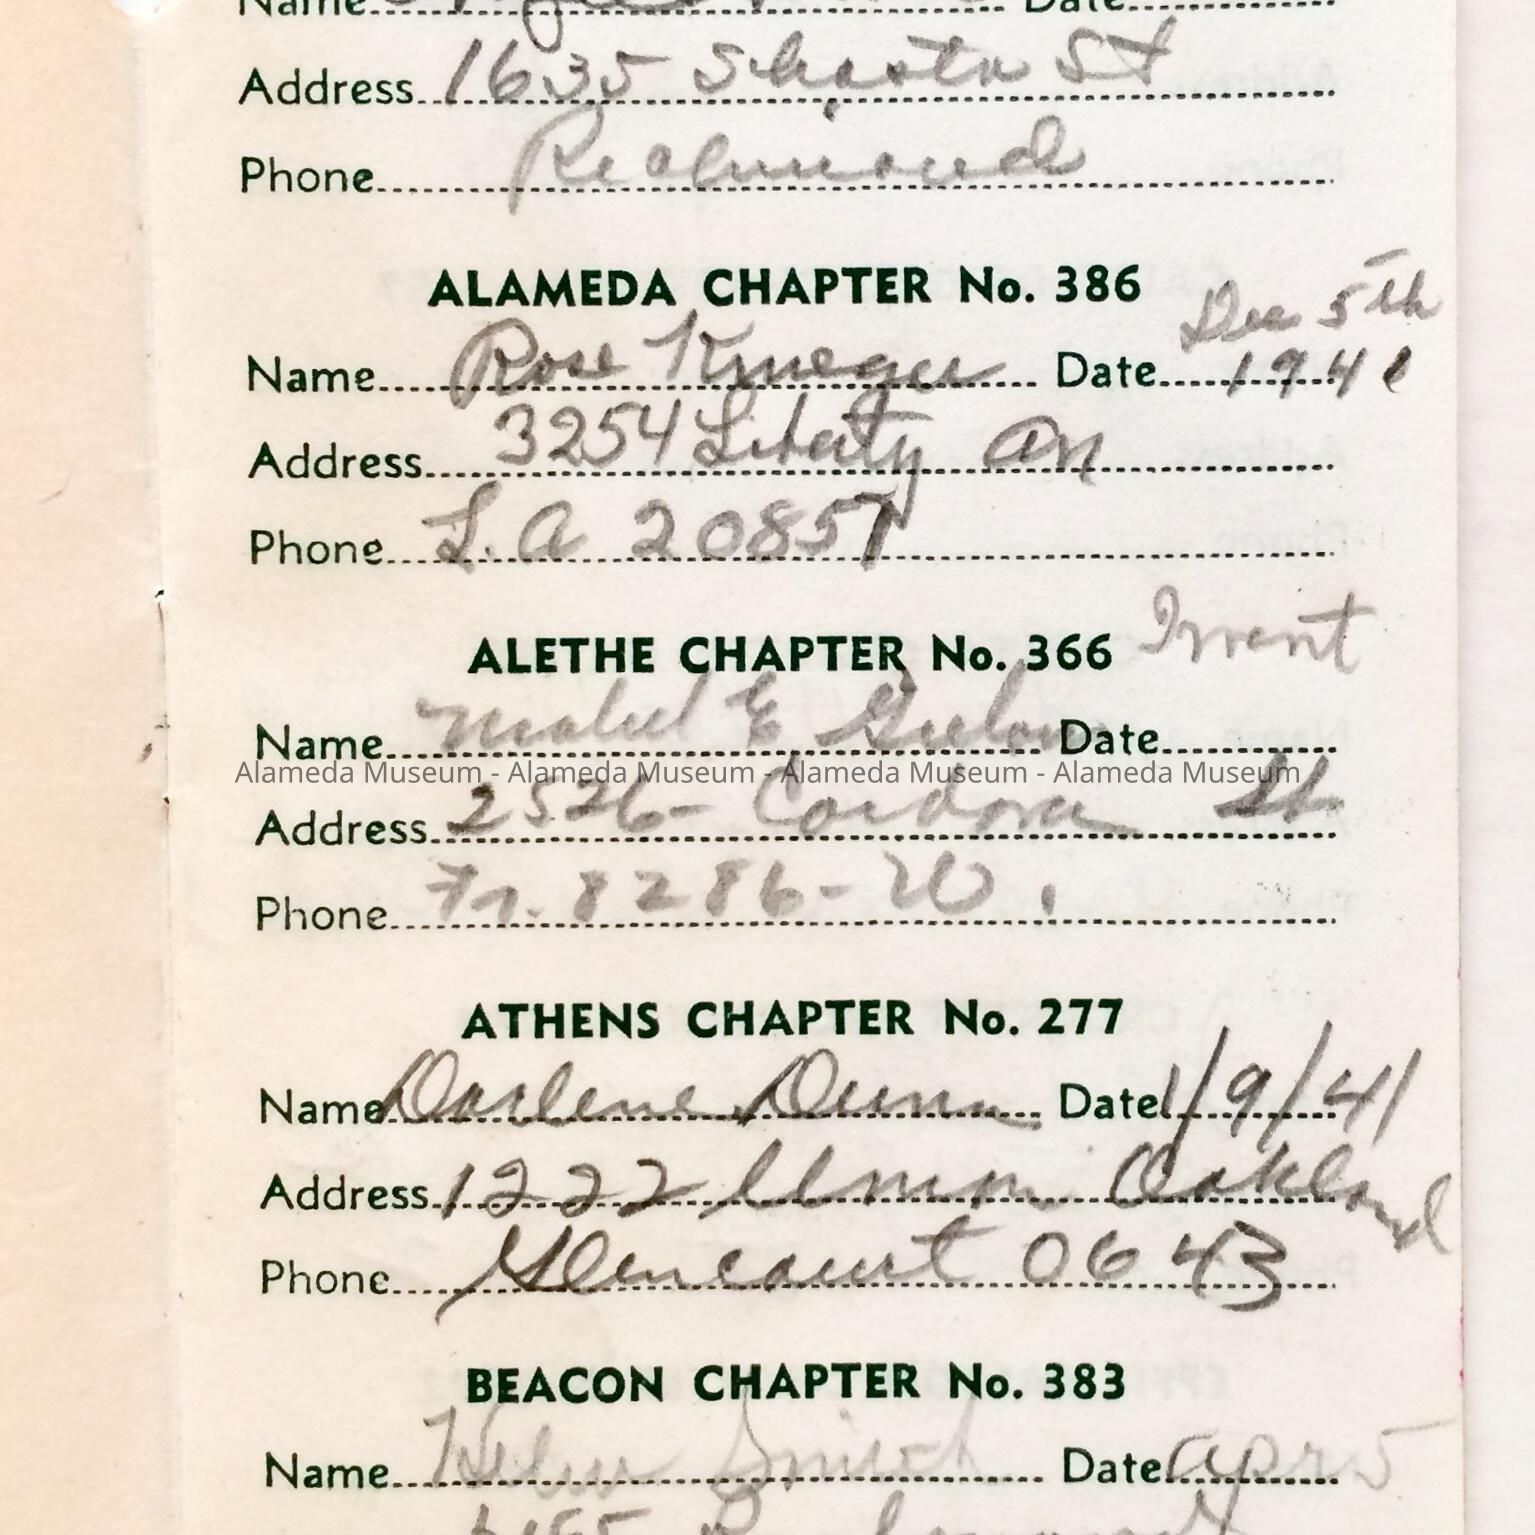 Name Date
Address 1635 Shasta St
Phone Richmond
ALAMEDA CHAPTER No. 386
Dec 5th
Name Rose Krueger Date 1941
Address 3254 Liberty Av
Phone L.A 20857
ALETHE CHAPTER No. 366
Name Mabel E Date
Alameda Museum - Alameda Museum - Alameda Museum - Alameda Museum
Address 2526- Cordova St
Phone Fr. 8286-W.
ATHENS CHAPTER No. 277
Name Darlene Dunn Date 1/9/41
Address 1222 Oakland
Phone Glencourt 0643
BEACON CHAPTER No. 383
Name Helen Smith Date Apr 5